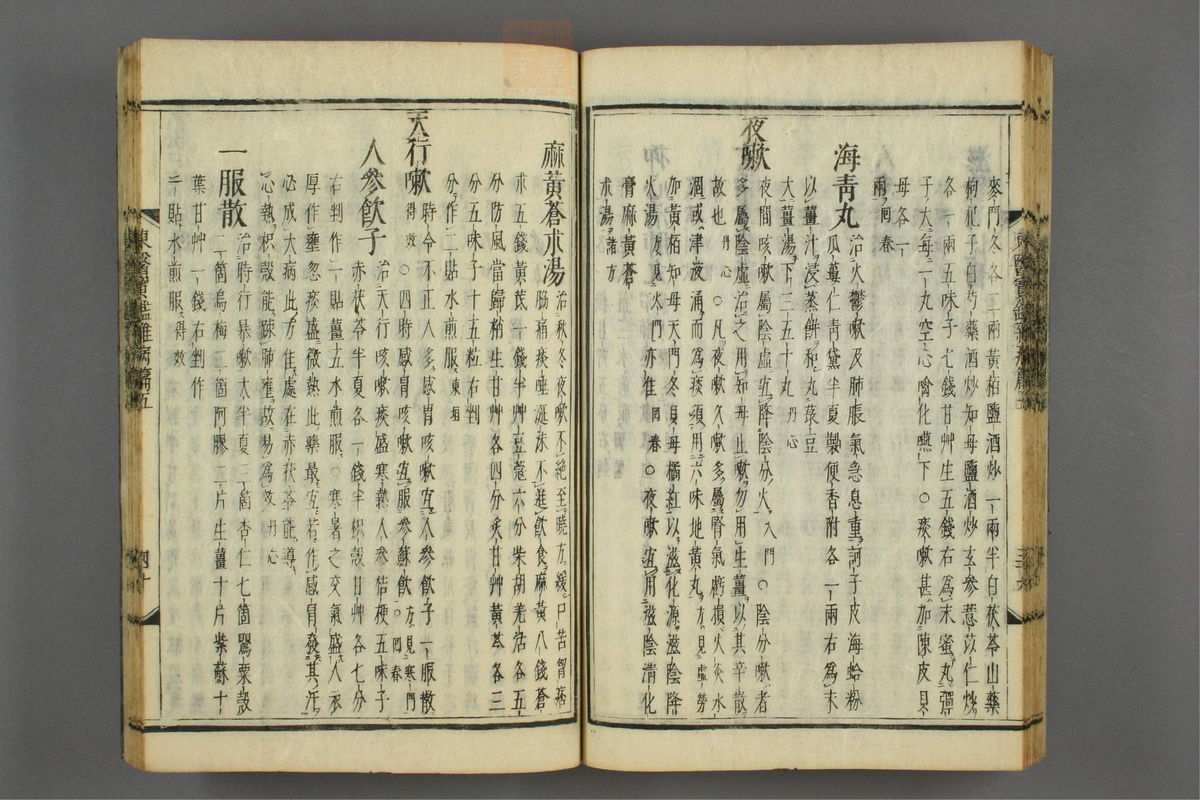 麥門冬各二兩黃栢鹽酒炒一兩半白茯苓山藥
枸杞子白芍藥酒炒知母鹽酒炒玄參薏苡仁炒
各一兩五味子七錢甘艸生五錢右爲末蜜丸彈
子大每一丸空心噙化嚥下○痰嗽甚加陳皮貝
母各一兩回春
海靑丸治火鬱嗽及肺脹氣急息重訶子皮海蛤粉
瓜蔞仁靑黛半夏麴便香附各一兩右爲末
以薑汁浸蒸餠和丸菉豆
大薑湯下三五十丸丹心
夜嗽夜間咳嗽屬陰虛宜降陰分火入門○陰分嗽者
多屬陰虛治之用知母止嗽勿用生薑以其辛散
故也丹心○凡夜嗽久嗽多屬腎氣虧損火炎水
涸或津液涌而爲痰須用六味地黃丸方見虛勞
加黃栢知母天門冬貝母橘紅以滋化源滋陰降
火湯方見火門亦佳回春○夜嗽宜用滋陰淸化
膏麻黃蒼
朮湯諸方
麻黃蒼朮湯治秋冬夜嗽不絕至曉方緩口苦胷痞
脇痛痰唾涎沫不進飮食麻黃八錢蒼
朮五錢黃芪一錢半艸豆蔻六分柴胡羌活各五
分防風當歸梢生甘艸各四分炙甘艸黃芩各三
分五味子十五粒右剉
分作二貼水煎服東垣
天行嗽時令不正人多感冒咳嗽宜人參飮子一服散
得效○四時感冒咳嗽宜服參蘇飮方見寒門○回春
人參飮子治天行咳嗽痰盛寒熱人參桔梗五味子
赤茯苓半夏各一錢半枳殼甘艸各七分
右剉作一貼薑五水煎服○寒暑之交氣盛人衣
厚作壅忽痰盛微熱此藥最宜若作感冒發其汗
必成大病此方佳處在赤茯苓能導
心熱枳殼能踈肺壅故易爲效丹心
一服散治時行暴嗽大半夏三箇杏仁七箇鸎粟殼
二箇烏梅二箇阿膠二片生薑十片紫蘇十
葉甘艸一錢右剉作
一貼水煎服得效
東醫寶鑑雜病篇五
四十